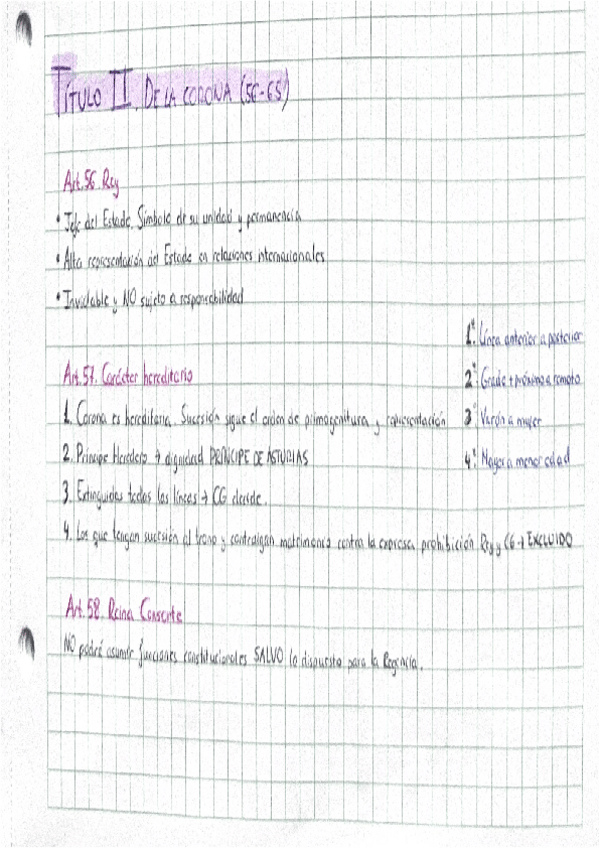 TÍTULO II. DE LA CORONA (56-65)
Art.56. Rey
• Jefe del Estado. Símbolo de su unidad y permanencia
• Alta representación del Estado en relaciones internacionales
• Inviolable y NO sujeto a responsabilidad
Art.57. Carácter hereditario
1. Corona es hereditaria. Sucesión sigue el orden de primogenitura y representación
2. Príncipe Heredero → dignidad PRÍNCIPE DE ASTURIAS
3. Extinguidas todas las líneas → CG decide.
4. Los que tengan sucesión al trono y contraigan matrimonio contra la expresa prohibición Rey y CG → EXCLUIDO
1º. Línea anterior a posterior
2º. Grado + próximo a remoto
3º. Varón a mujer
4º. Mayor a menor edad
Art.58. Reina Consorte
NO podrá asumir funciones constitucionales SALVO lo dispuesto para la Regencia.